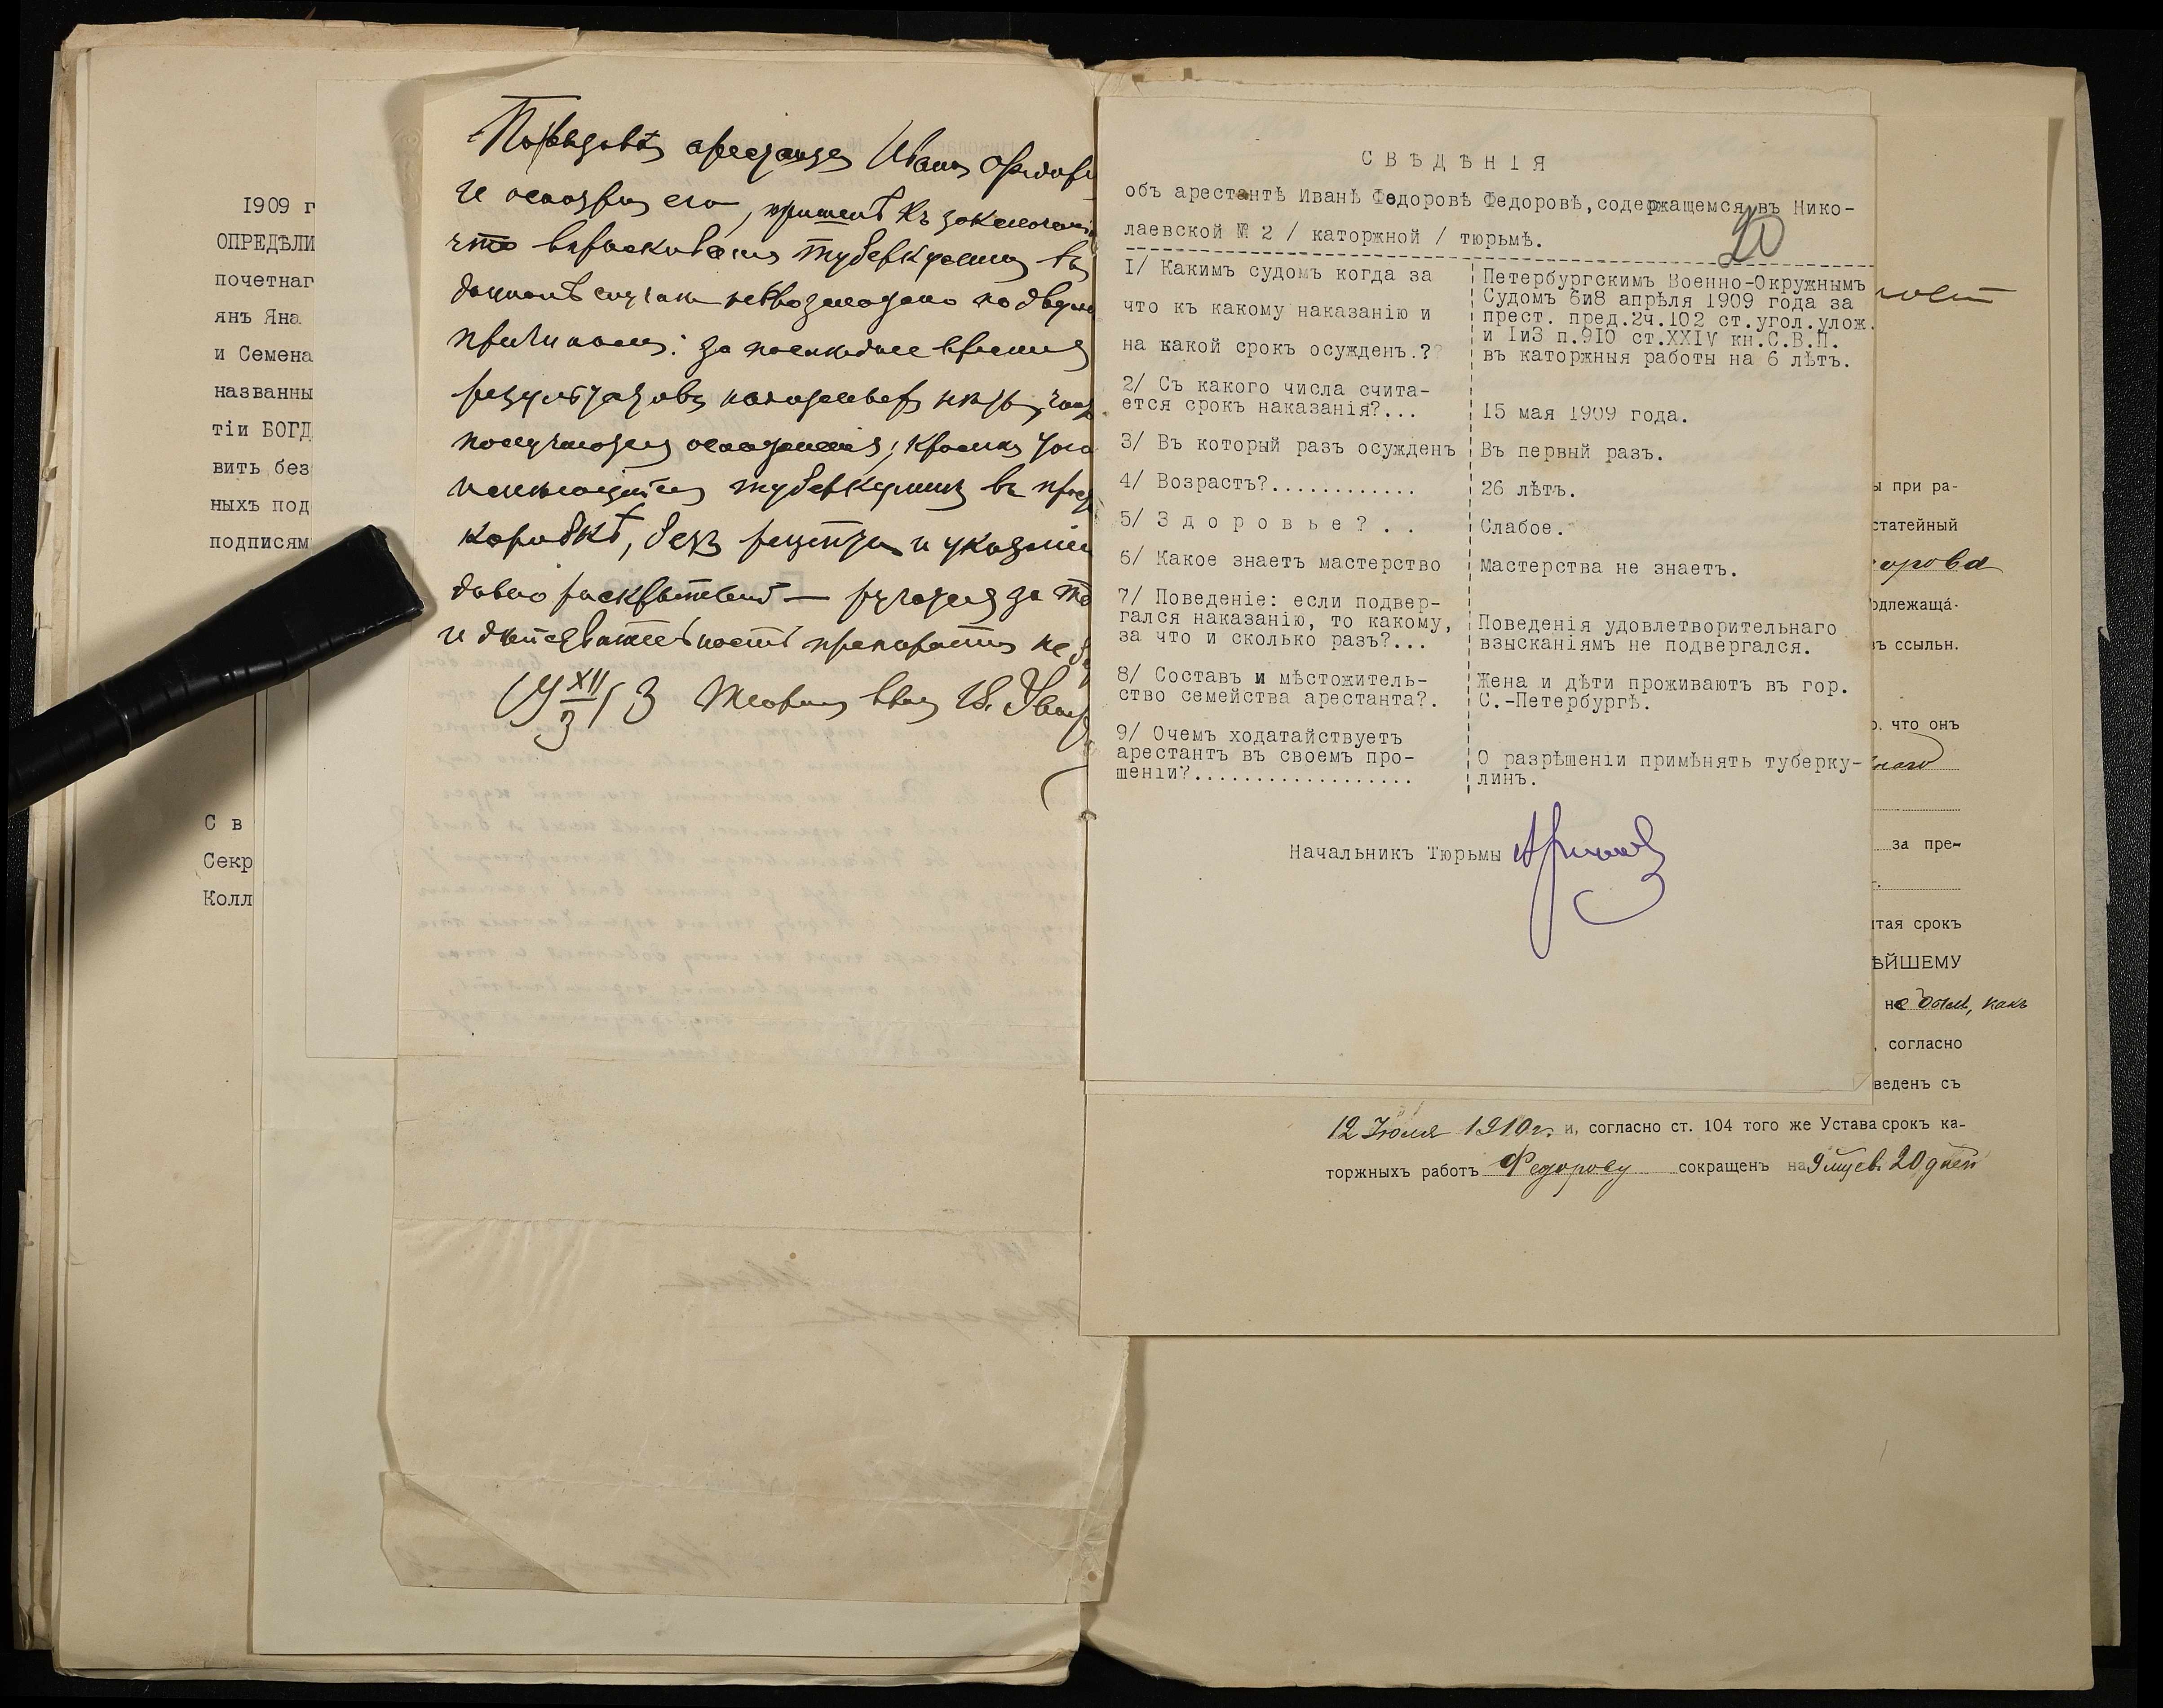 1909 г
ОПРЕДѢЛИ
почетнаг
янъ Яна
и Семена
названны
тіи БОГД
вить без
ныхъ под
подписям
С в
Секр
Колл
арестанта Иванъ Федоров
и осмотрѣвъ его, пришелъ къ заключені
что впрыскиваніе туберкулина въ
данномъ случаѣ невозможно по двум
причинамъ: за последнее время
результатовъ нѣтъ,
получаются осложненія; кромѣ того
имѣющійся туберкулинъ въ
коробкѣ, безъ рецепта и указанія
давно раскрытой — ручаться за
и дѣйствительность препарата не
19 XII/3 13 Тюрем врач
СВѢДѢНІЯ
объ арестантѣ Иванѣ Федоровѣ Федоровѣ, содержащемся въ Нико-
лаевской № 2 / каторжной / тюрьмѣ.
20
I/ Какимъ судомъ когда за
что къ какому наказанію и
на какой срокъ осужденъ.??
Петербургскимъ Военно-Окружнымъ
Судомъ 6и8 апрѣля 1909 года за
прест. пред.2ч.102 ст.угол.улож.
и Iи3 п.910 ст.XXIV кн.С.В.П.
въ каторжныя работы на 6 лѣтъ.
2/ Съ какого числа счита-
ется срокъ наказанія?...
I5 мая 1909 года.
3/ Въ который разъ осужденъ
Въ первый разъ.
4/ Возрастъ?............
26 лѣтъ.
5/ Здоровье?..
Слабое.
6/ Какое знаетъ мастерство
Мастерства не знаетъ.
7/ Поведеніе: если подвер-
гался наказанію, то какому,
за что и сколько разъ?...
Поведенія удовлетворительнаго
взысканіямъ не подвергался.
8/ Составъ и мѣстожитель-
ство семейства арестанта?.
Жена и дѣти проживаютъ въ гор.
С.-Петербургѣ.
9/ Очемъ ходатайствуетъ
арестантъ въ своемъ про-
шеніи?..................
О разрѣшеніи примѣнять туберку-
линъ.
Начальникъ Тюрьмы
ы при ра-
статейный
орова
одлежаща-
въ ссыльн.
о. что онъ
за пре-
итая срокъ
ѢЙШЕМУ
не былъ, какъ
, согласно
веденъ съ
12 Іюля 1910 г. и, согласно ст. 104 того же Устава срокъ ка-
торжныхъ работъ Федорову сокращенъ на 9 мѣс. 20 дней